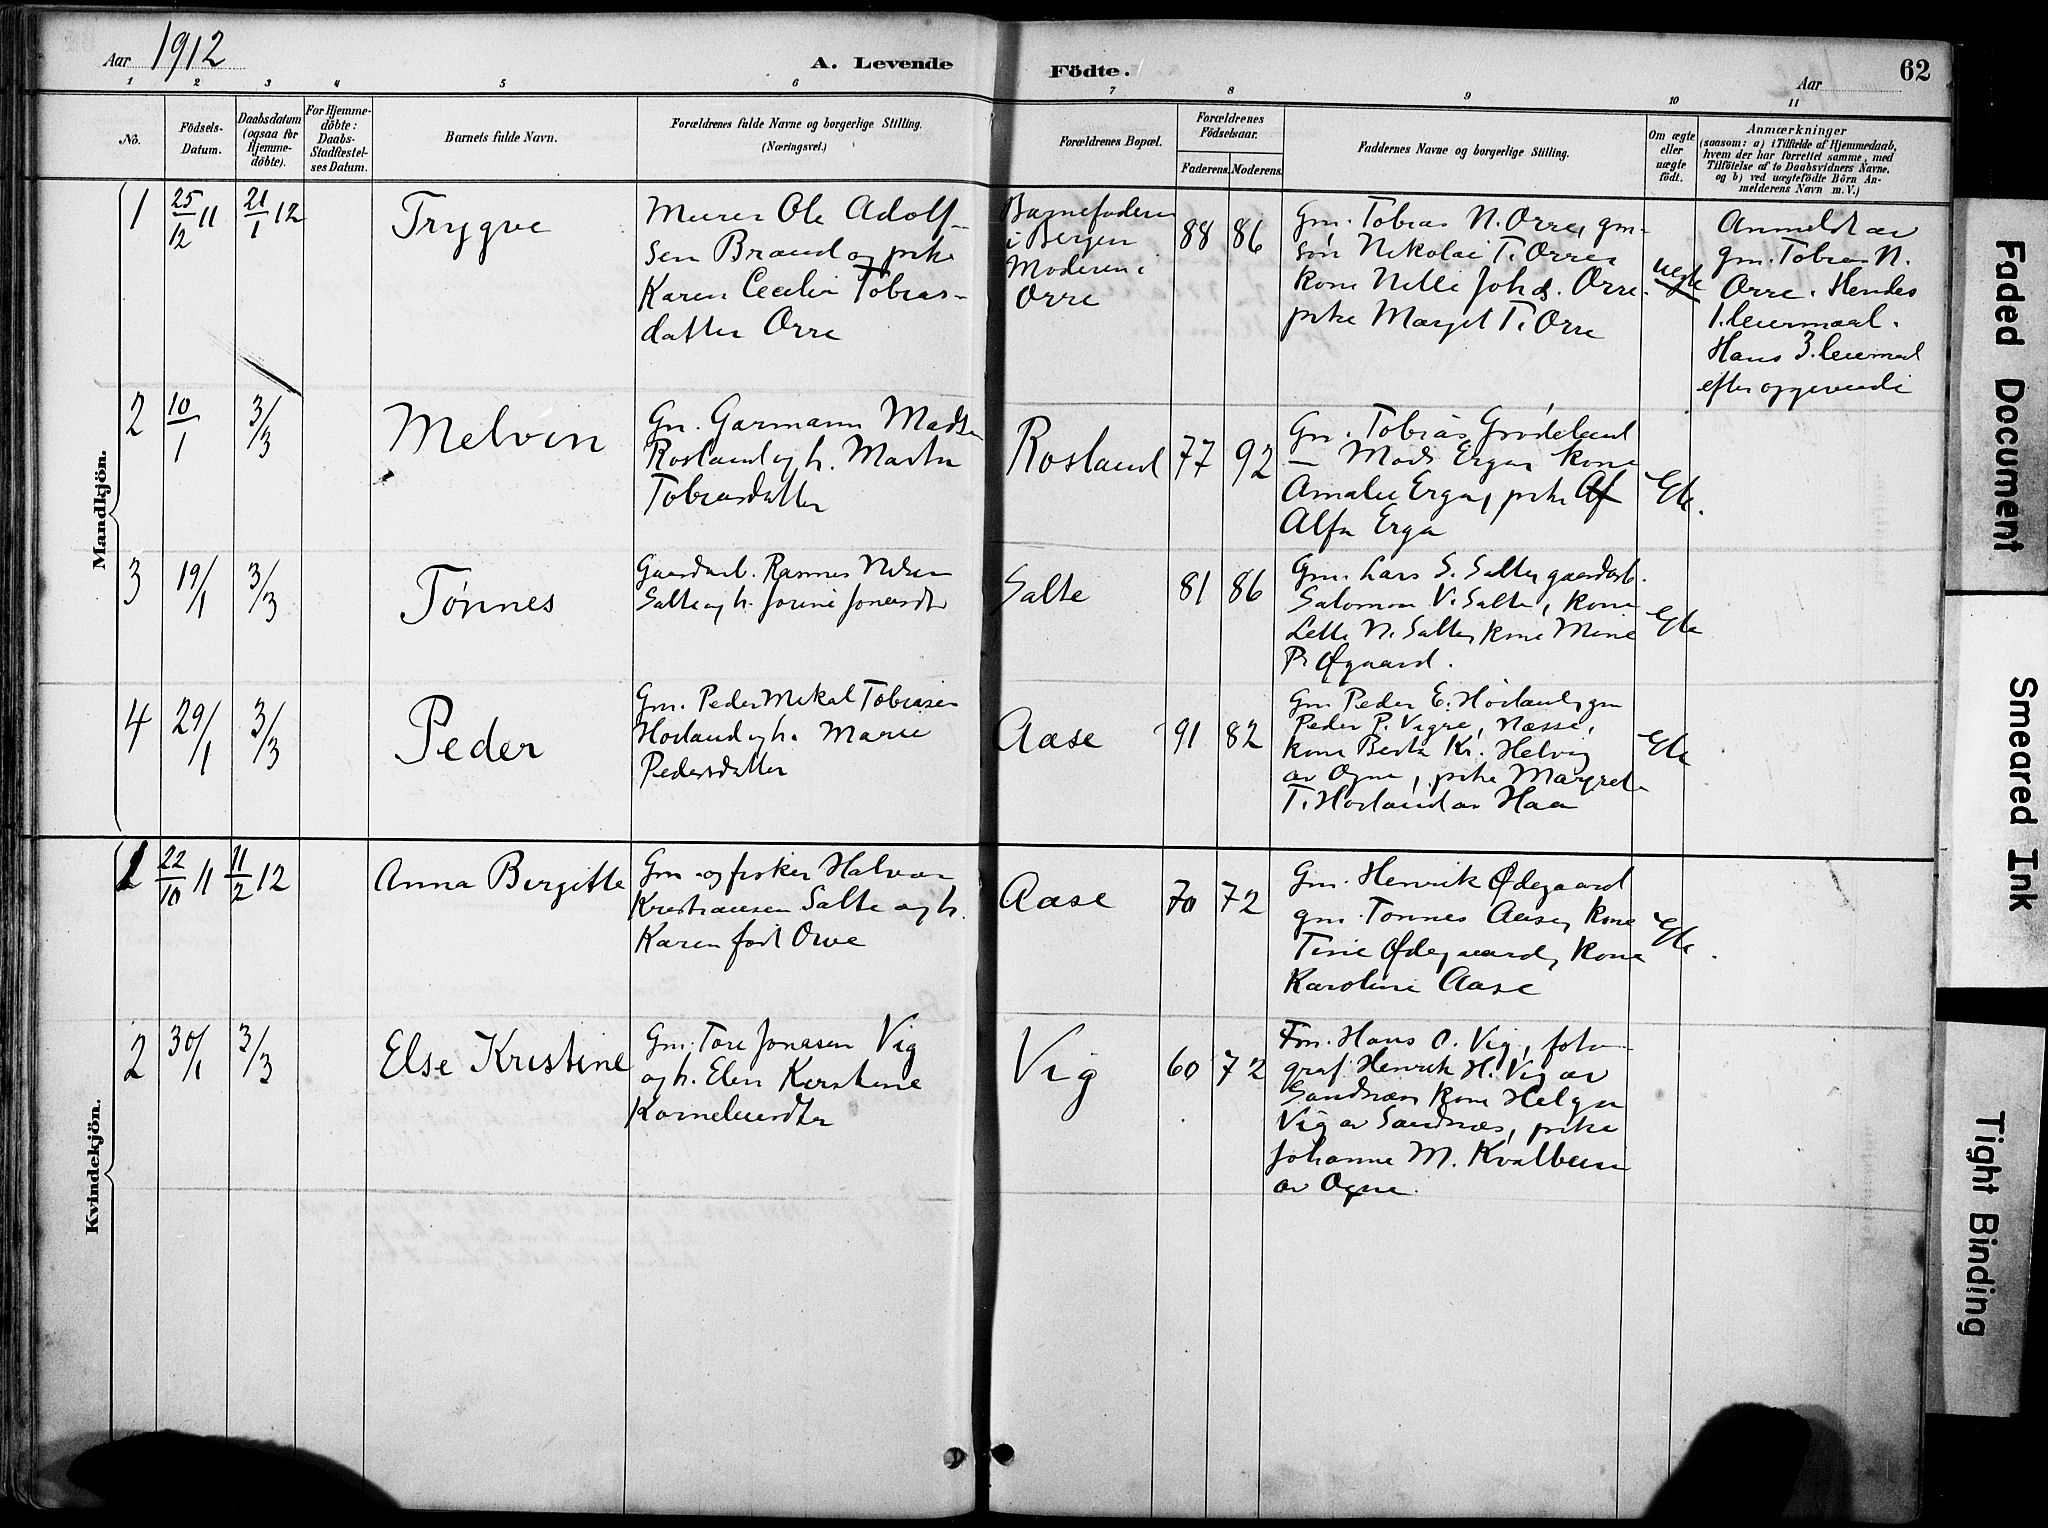 Aar 1912
A. Levende Födte.
Aar
62
1 2 3 4 5 6 7 8 9 10 11
No.
Födsels-
Datum.
Daabsdatum
(ogsaa for
Hjemme-
döbte).
For Hjemme-
döbte:
Daabs-
Stadfæstel-
ses Datum.
Barnets fulde Navn.
Forældrenes fulde Navne og borgerlige Stilling.
(Næringsvei.)
Forældrenes Bopæl.
Forældrenes
Födselsaar.
Faderens. Moderens.
Faddernes Navne og borgerlige Stilling.
Om ægte
eller
uægte
födt.
Anmærkninger
(saasom: a) i Tilfælde af Hjemmedaab,
hvem der har forrettet samme, med
Tilföielse af to Daabsvidners Navne.
og b) ved uægtefödte Börn An-
melderens Navn m. V.)
Mandkjön.
1
25/12 11
21/1 12
Trygve
Murer Ole Adolf-
sen Braud og pike
Karen Cecilie Tobias-
datter Orre
Barnefaderen
i Bergen
Moderen i
Orre
88 86
Gm. Tobias N. Orre, gm-
søn Nikolai T. Orre,
kone Nelli Johs. Orre.
pike Marget T. Orre
uegte
Anmeldt av
gm. Tobias N.
Orre. Hendes
1. leiermaal.
Hans 3. leiermaal
efter opgivende
2
10/1
3/3
Melvin
Gm. Garmann Madsen
Rosland og h. Marta
Tobiasdatter
Rosland
77 92
Gm. Tobias Grødeland
— Mads Erga, kone
Amalie Erga, pike Af
Alfa Erga
Egte.
3
19/1
3/3
Tønnes
Gaardarb. Rasmus Nilsen
Salte og h. Jorine Jonasdtr
Salte
81 86
Gm. Lars S. Salte, gaardarb.
Salomon V. Salte, kone
Lette N. Salte, kone Mine
P. Øgaard.
Egte
4
29/1
3/3
Peder
Gm. Peder Mikal Tobiasen
Horland og h. Marie
Pedersdatter
Aase
91 82
Gm Peder E. Horland, gm
Peder P. Vigre, Næsse,
kone Berta Kr. Helvig
av Ogne, pike Margrete
T. Horland av Haa
Egte
Kvindekjön.
1
22/10 11
11/2 12
Anna Birgitte
Gm -og fisker Halvor
Kristiansen Salte og h.
Karen født Orre
Aase
70 72
Gm. Henrik Ødegaard
gm. Tønnes Aase, kone
Tine Ødegaard, kone
Karoline Aase
Egte.
2
30/1
3/3
Else Kristine
Gm. Tore Jonasen Vig
og h. Elen Kirstine
Korneliusdtr
Vig
60 72
Fm. Hans O. Vig, foto-
graf Henrik H. Vig av
Sandnæs, kone Helga
Vig av Sandnæs, pike
Johanne M. Kvalbein
av Ogne.
Faded Document
Smeared Ink
Tight Binding